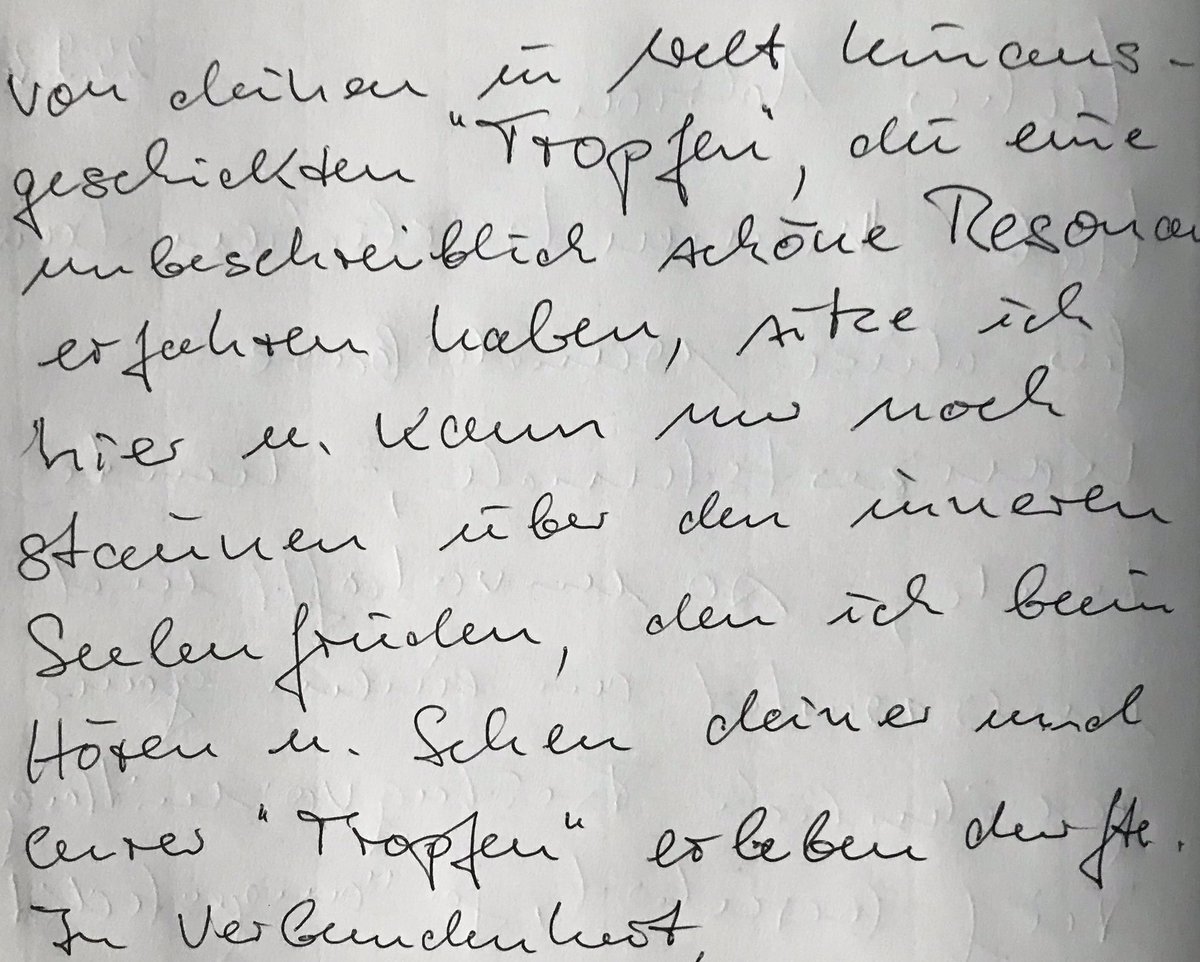 von deinen in Welt hinaus-
geschickten "Tropfen", die eine
unbeschreiblich schöne Resonanz
erfahren haben, sitze ich
hier u. kann nur noch
staunen über den inneren
Seelenfrieden, den ich beim
Hören u. Sehen deiner und
eurer "Tropfen" erleben durfte.
In Verbundenheit,